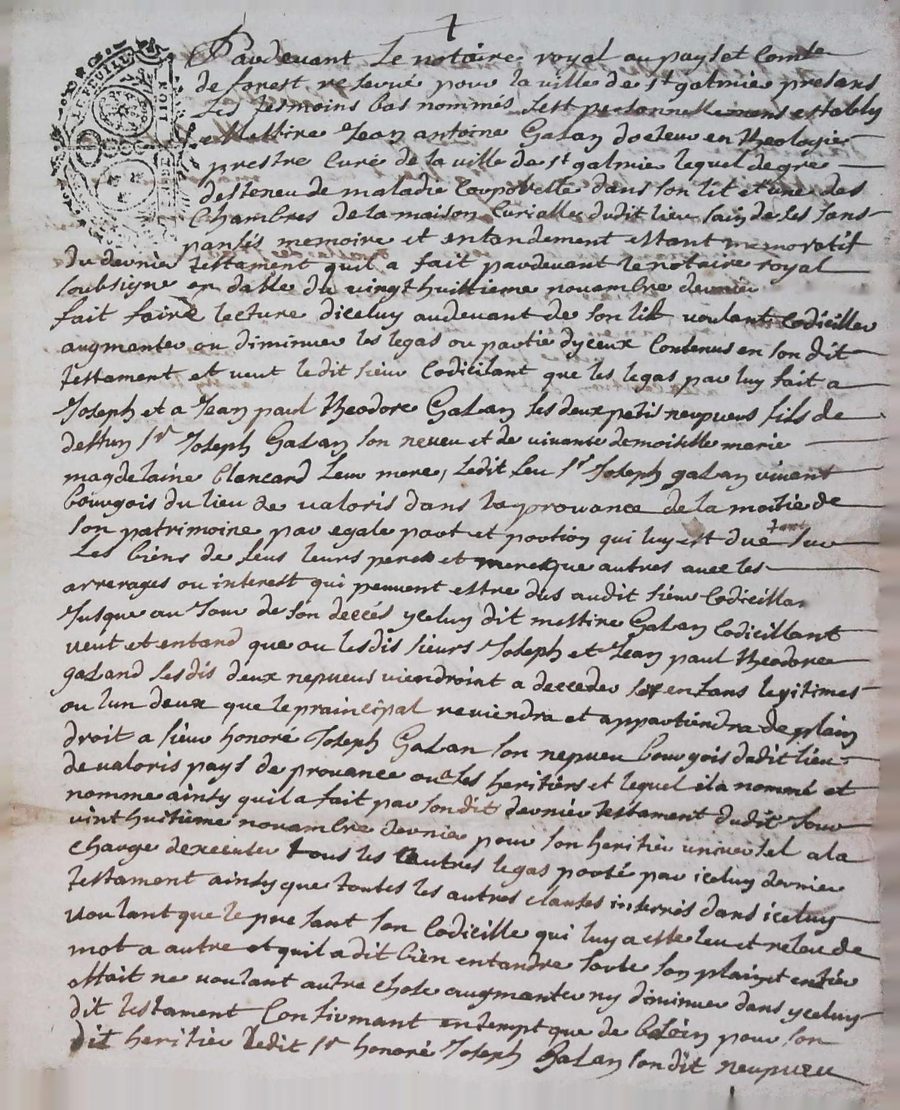 1
Pardevant Le notaire royal au pays et Comte
de forest reservé pour la ville de st galmie presans
Les temoins bas nommés s'est personnellement estably
Messire Jean antoine Galan docteur en theologie
prestre Curé de la ville de st galmie lequel de gre
desteneu de maladie Corporelle dans son lit et une des
Chambres de la maison Curialle dudit lieu sain de ses sans
pansés memoire et entandement estant memoratif
du dernier testament quil a fait pardevant le notaire royal
soubsigne en datte du vingt huittieme novambre dernier
fait faire lecture diceluy audevant de son lit voulant Codiciller
augmenter ou diminuer les legas ou partie dyceux Contenus en son dit
testament et veut ledit sieur Codicilant que les legas par luy fait a
Joseph et a Jean paul theodore Galan ses deux petis nepueus fils de
deffun sr Joseph Galan son neveu et de vivante demoiselle marie
magdelaine blancard leur mere, ledit feu sr Joseph galan vivent
bourgois du lieu de valoris dans la provance de la moitié de
son patrimoine par egale part et portion qui luy est due sur
Les biens de feus leurs peres et meres que autres avec les
arrerages ou interest qui peuvent estre dus audit sieur Codicillan
Jusque au Jour de son decces yceluy dit messire Galan Codicillant
veut et entand que ou lesdis sieurs Joseph et Jean paul theodore
galand sesdis deux nepueus viendroint a decceder sans enfans legitimes
ou lun deux que le praincipal reviendra et appartiendra de plain
droit a sieur honoré Joseph Galan son nepueu bourgois dudit lieu
de valoris pays de provance ou a les heritiers et lequel il a nommé et
nomme ainsy quil a fait par sondit dernier testament dudit Jour
vint huitieme novambre dernier pour son heritier universel a la
charge dexecuter tous les autres legas porté par iceluy dernier
testament ainsy que toutes les autres clauses inserrés dans iceluy
voulant que le presant son Codicille qui luy a esté leu et releu de
mot a autre et quil a dit bien entandre sorte son plain et entier
effait ne voulant autre chose augmenter ny diminuer dans yceluy
dit testament Confirmant en tempt que de besoin pour son
dit heritier ledit sr honoré Joseph Galan sondit nepueu